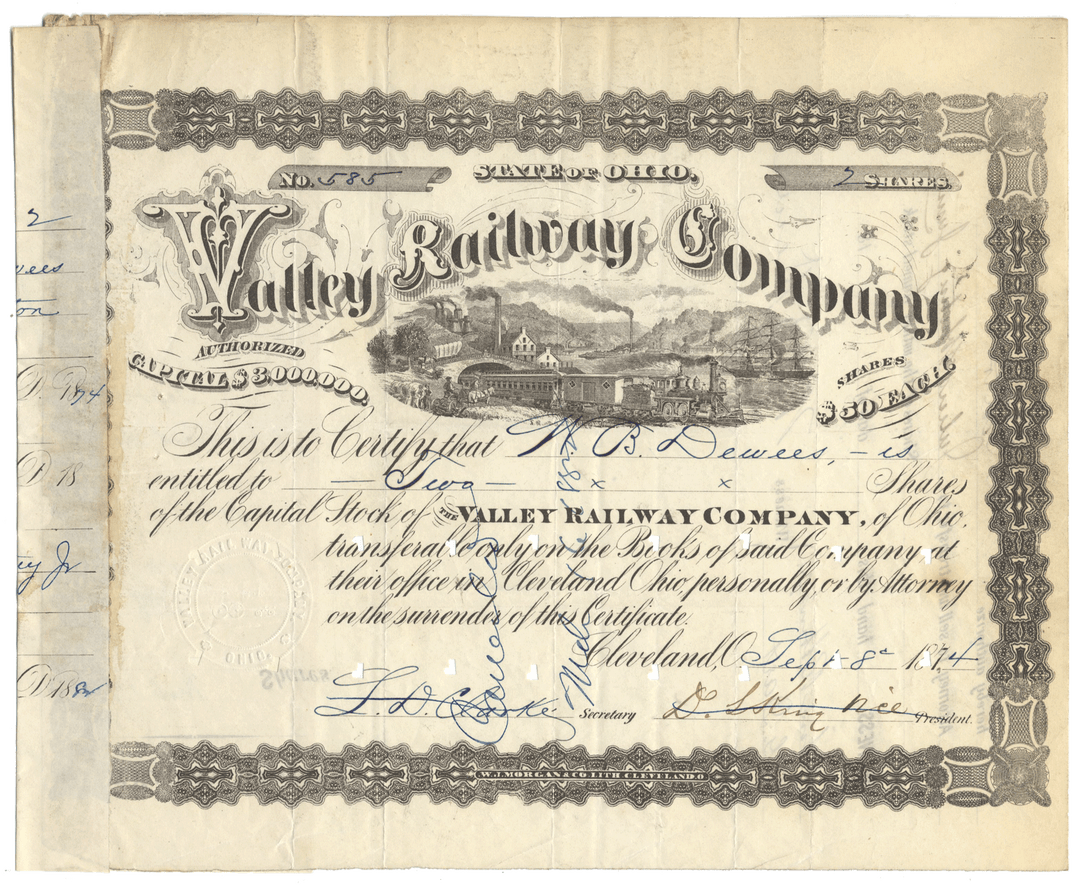 No. 585
STATE OF OHIO,
2 SHARES.
Valley Railway Company
AUTHORIZED
CAPITAL $3,000,000.
SHARES
$50 EACH.
This is to Certify that W. B. Dewees, – is
entitled to — Two — x x Shares
of the Capital Stock of THE VALLEY RAILWAY COMPANY, of Ohio,
transferable only on the Books of said Company at
their office in Cleveland Ohio, personally, or by Attorney
on the surrender of this Certificate.
Cleveland, O. Sept 8th 1874
L. D. Clarke Secretary D. L. King Vice President.
Cancelled
VALLEY RAILWAY COMPANY
OHIO
Shares
W. J. MORGAN & CO. LITH. CLEVELAND. O.
2
wees
on
D. 1874
D 18
ey Jr
D 188